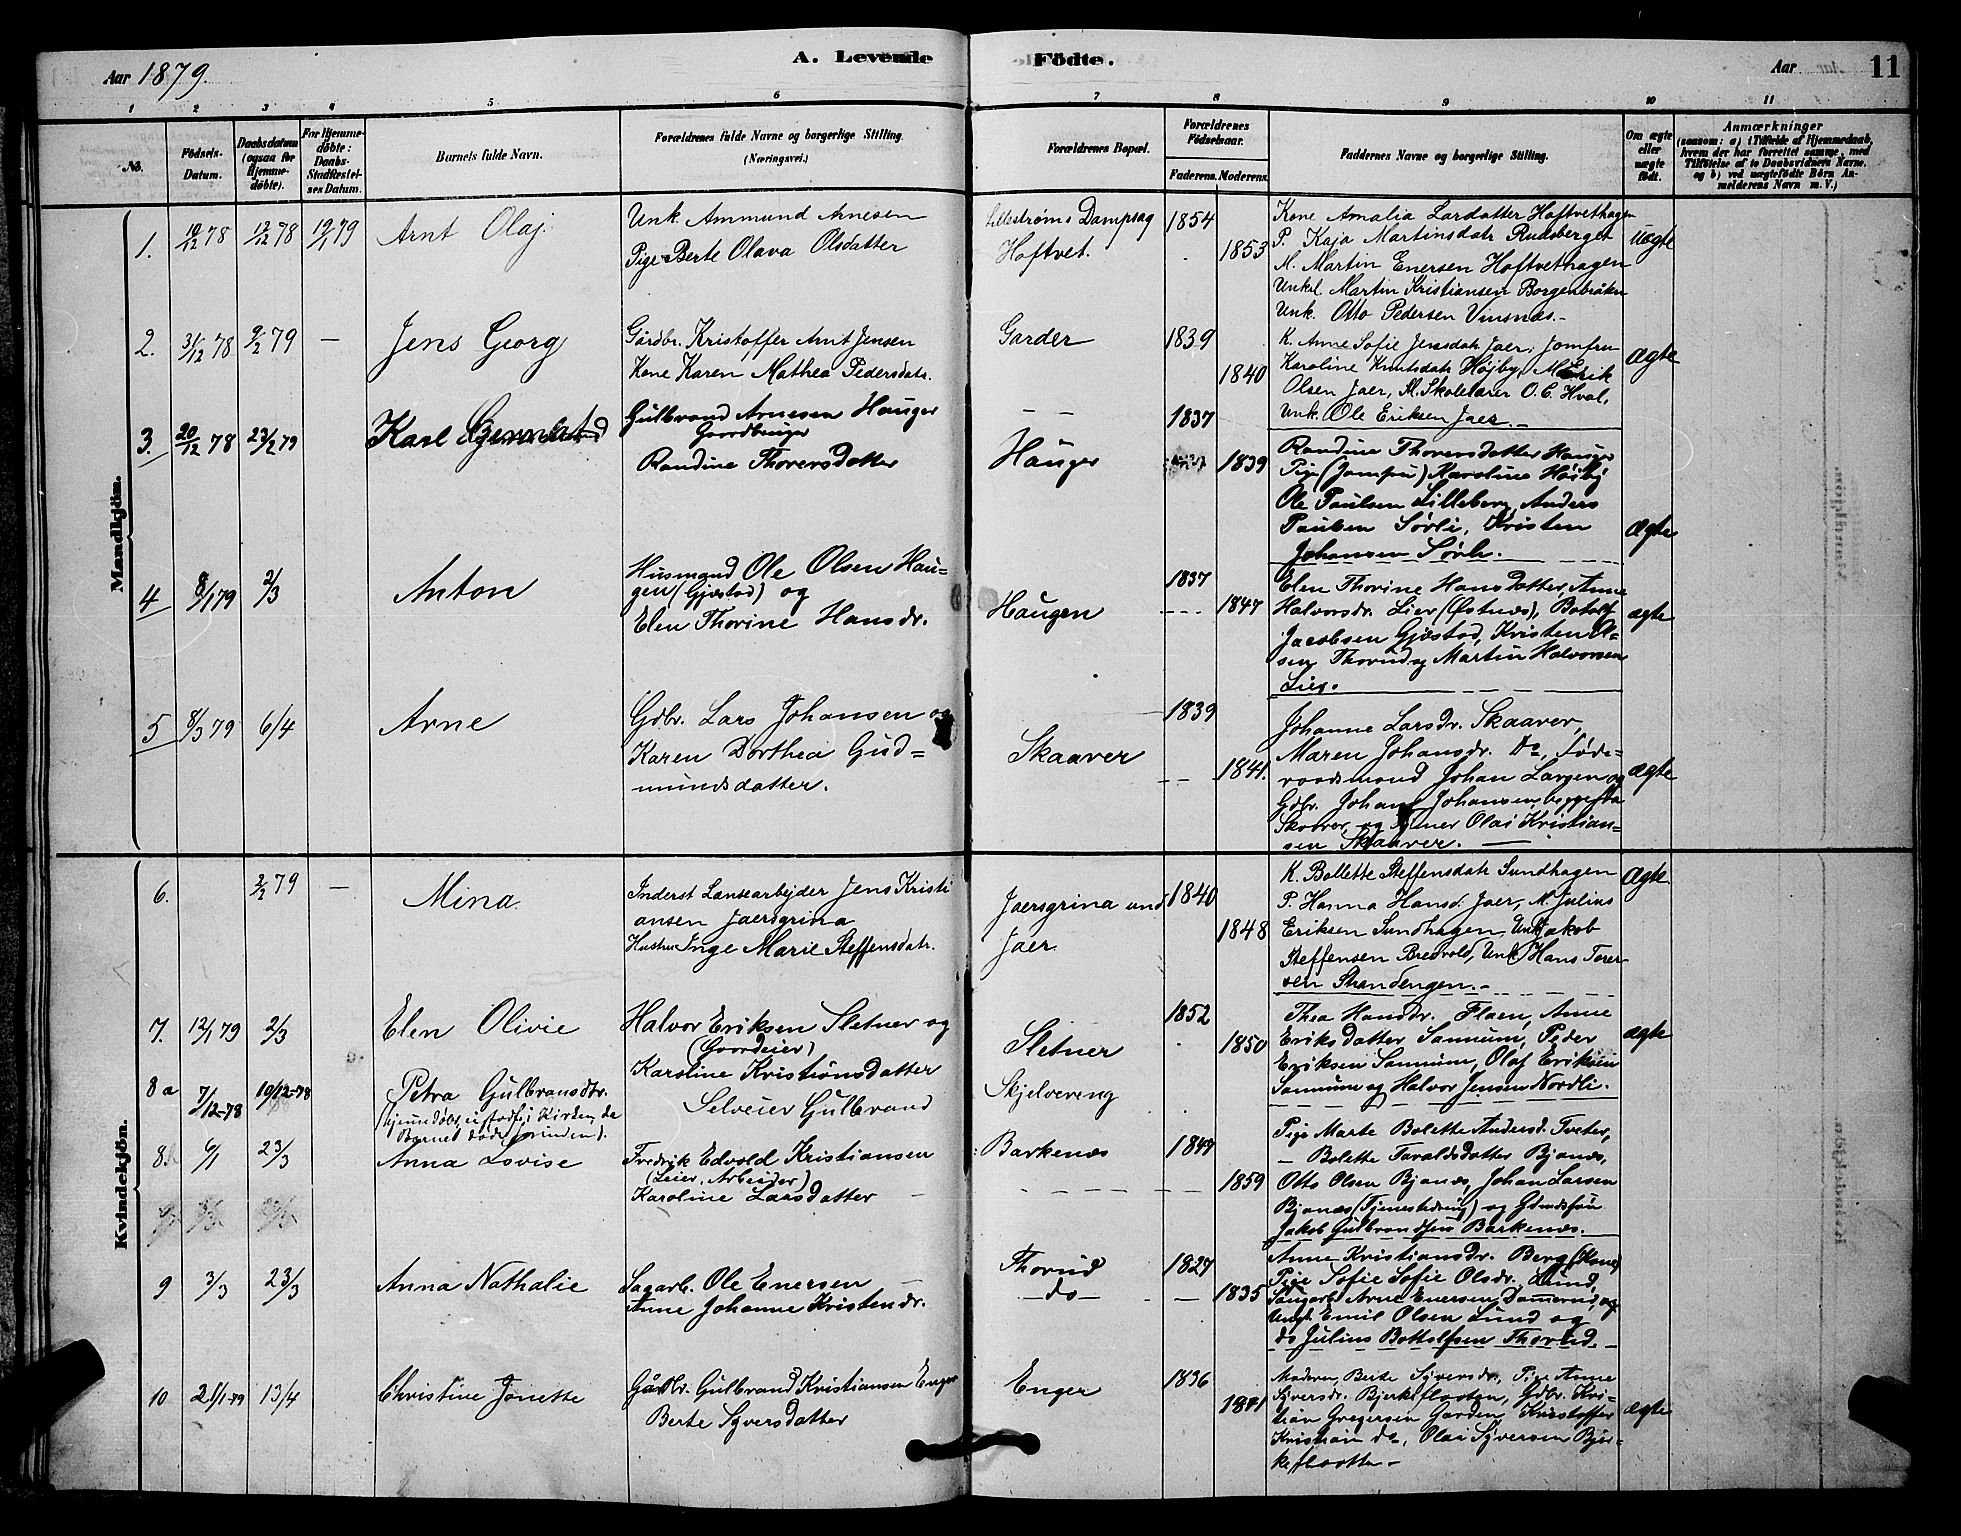 Aar 1879.
A. Levende
Födte.
Aar
11
1
2
3
4
5
6
7
8
9
10
11
No.
Födsels-
Datum.
Daabsdatum
(ogsaa for
Hjemme-
döbte).
For Hjemme-
döbte:
Daabs-
Stadfæstel-
ses Datum.
Barnets fulde Navn.
Forældrenes fulde Navne og borgerlige Stilling.
(Næringsvei.)
Forældrenes Bopæl.
Forældrenes
Födselsaar.
Faderens.
Moderens.
Faddernes Navne og borgerlige Stilling.
Om ægte
eller
uægte
födt.
Anmærkninger
(saasom: a) i Tilfælde af Hjemmedaab,
hvem der har forrettet samme, med
Tilföielse af to Daabsvidners Navne,
og b) ved uægtefödte Börn An-
melderens Navn m. V.)
Mandkjön.
1. 10/12 78 12/12 78 19/1 79 Arnt Olaj
Unk. Ammund Arnesen
Pige Berte Olava Olsdatter
Lillestrøms Dampsag
Hoftvet.
1854
1853
Kone Amalia Larsdatter Hoftvethagen
P. Kaja Martinsdatr Rudsberget
M. Martin Enersen Hoftvethagen
Unkl Martin Kristiansen Borgenbråten
Unk. Otto Pedersen Vinsnæs.-
Uægte
2. 31/12 78 9/2 79 - Jens Georg
Gårdbr. Kristoffer Arnt Jensen
Kone Karen Mathea Pedersdatr.
Garder
1839
1840
K. Anne Sofie Jensdatr Jaer, Jomfru
Karoline Knutsdatr Højby, M Erik
Olsen Jaer, M. Skolelærer O. C. Hval,
Unk. Ole Eriksen Jaer.-
Ægte
3. 20/12 78 23/2 79 Karl
Gulbrand Arnesen Hauger
Gaardbruger
Randine Thoversdatter
Hauger
1837
1839
Randine Thoversdatter Hauger
Pige (Jomfru) Karoline Høiby
Ole Paulsen Lilleberg, Anders
Paulsen Sørli, Kristen
Johansen Sørli.
ægte
4 8/1 79 2/3 Anton
Husmand Ole Olsen Hau-
gen (Gjæstad) og
Elen Thorine Hansdr.
Haugen
1837
1847
Elen Thorine Hansdatter, Anne
Halvorsdr. Lier (Østnæs), Botolf
Jacobsen Gjæstad, Kristen Ol-
sen Thorud og Martin Halvorsen
Lier.
ægte
5 8/3 79 6/4 Arne
Gdbr. Lars Johansen og
Karen Dorthea Gud-
mundsdatter.
Skaarer
1839
1841.
Johanne Larsdr. Skaarer,
Maren Johansdr. Do, Føde-
raadsmand Johan Larsen og
Gdbr. Johan Johansen begge fra
Skaarer, og Olai Kristian-
sen Skaarer.
ægte
Kvindekjön.
6. 2/2 79 - Mina
Inderst Lansearbejder Jens Kristi
ansen Jaersgrina
Hustru Inge Marie Steffensdatr.
Jaersgrina und
Jaer
1840
1848
K. Bollette Steffensdatr Sundhagen
P. Hanna Hansd. Jaer, M. Julius
Eriksen Sundhagen, Unk Jakob
Steffensen Bredvold, Unk Hans Torer-
sen Strandengen.-
Ægte
7. 12/1 79 2/3 Elen Olivie
Halvor Eriksen Sletner og
(Gaardeier)
Karoline Kristiansdatter
Sletner
1852
1850
Thea Hansdr. Flaen, Anne
Eriksdatter Sannum, Peder
Eriksen Sannum, Olaf Eriksen
Sannum og Halvor Jensen Nordli.
ægte
8 a 7/12-78 10/12-78 Petra Gulbransdtr.
(hjemmedøbt, ei i Kirken, da
Barnet døde forinden).
Selveier Gulbrand
Skjelvereng
8. 6/1 23/3 Anna Lovise
Fredrik Edvold Kristiansen
(Leier, Arbeider)
Karoline Larsdatter
Barkenæs
1847
1859
Pige Marte Bolette Andersd. Tveter,
- Bolette Taraldsdatter Bjanæs,
Otto Olsen Bjanæs, Johan Larsen
Bjanæs (Tjenestedreng) og
Jakob Gulbrandsen Barkenæs.
9 3/3 23/3 Anna Nathalie
Sagarb. Ole Enersen
Anne Johanne Kristendr.
Thorud
-do-
1827
1835
Anne Kristiansdr. Berg (Kone)
Pige Sofie Sofie Olsdr. Lund,
Saugarb. Arne Enersen Dammerud, og
Ungk. Emil Olsen Lund og
do Julius Bottolfsen Thorud.-
10 25/1-79 13/4 Christine Jonette
Gårdbr. Gulbrand Kristiansen Enger
Berte Syversdatter
Enger
1836
1841
Moderen, Berte Syversdr., Pige Anne
Syversdr. Bjerkeflaaten, Gdbr. Kri-
stian Gregersen Garden, Kristoffer
Kristian do, Olai Syversen Bjer-
keflaatten-
ægte